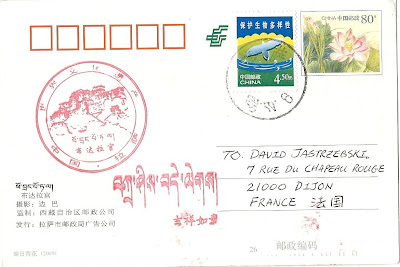 保护生物多样性
中国邮政
CHINA
4.50元
CHINA 中国邮政
80分
布达拉宫
中国·拉萨
བཀྲ་ཤིས་བདེ་ལེགས།
吉祥如意
TO: DAVID JASTRZEBSKI
7 RUE DU CHAPEAU ROUGE
21000 DIJON
FRANCE 法国
布达拉宫
摄影：边巴
监制：西藏自治区邮政公司
发行：拉萨市邮政局广告公司
26
邮政编码